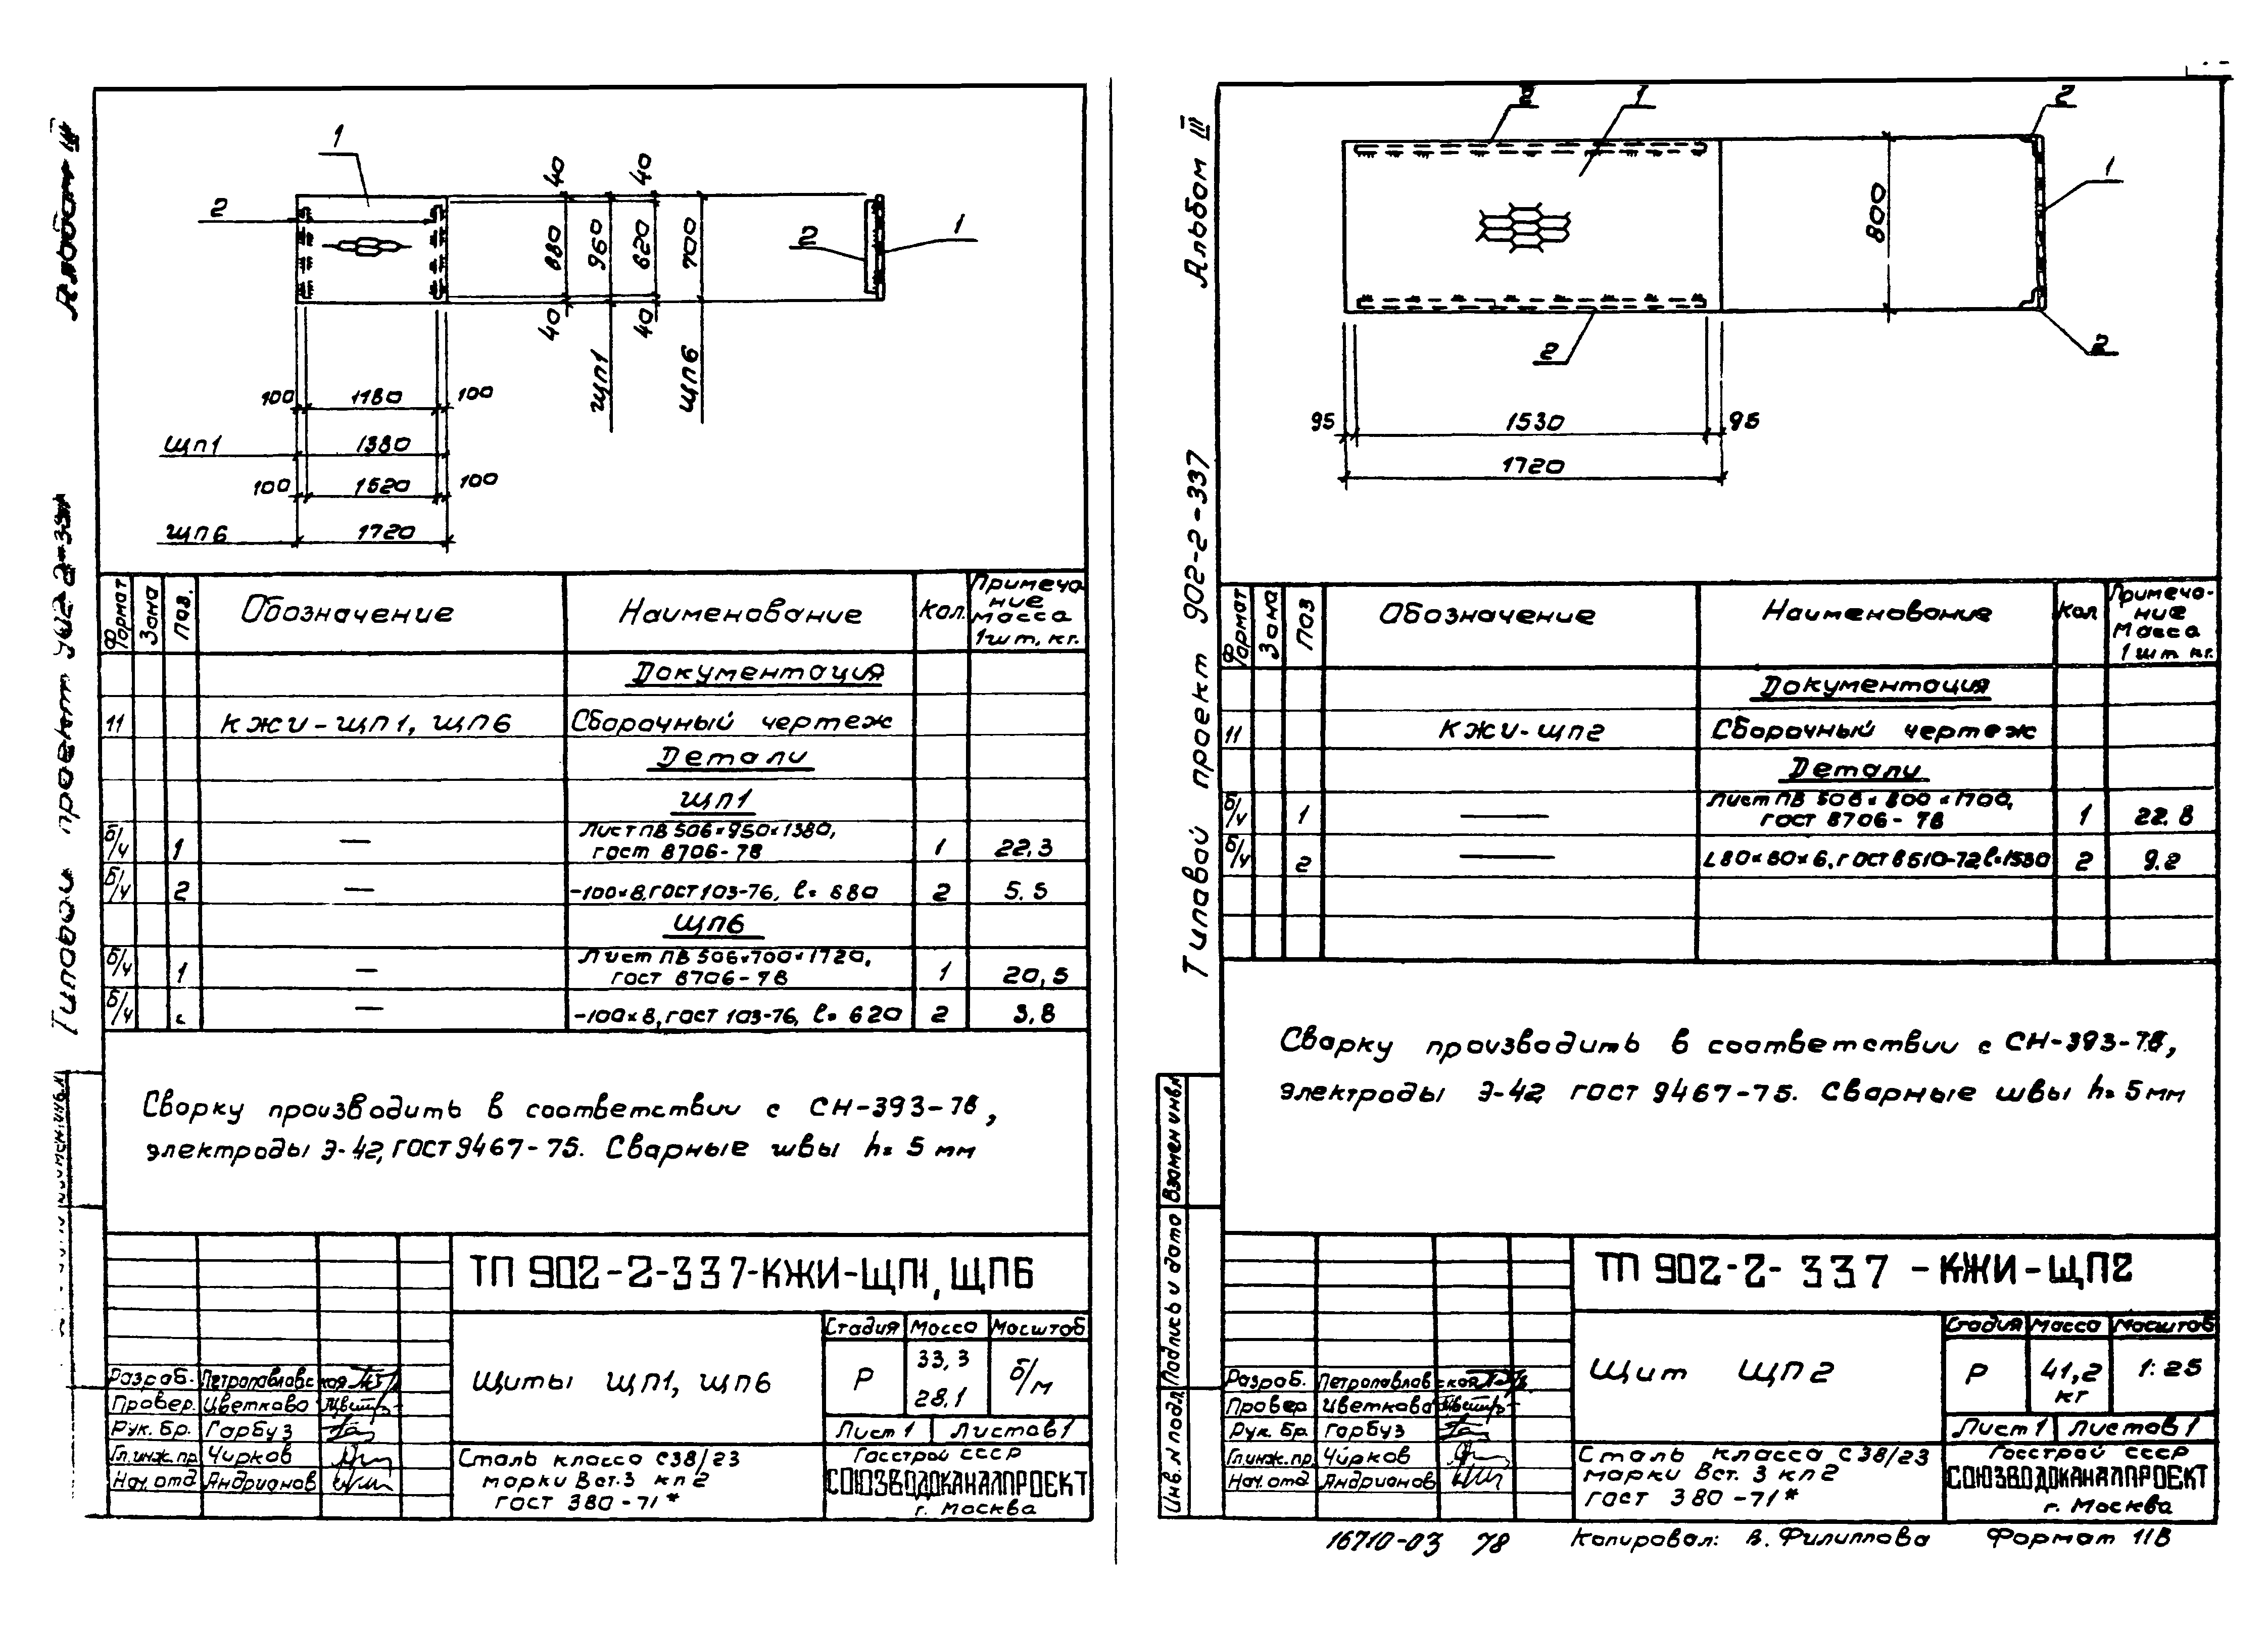 Альбом III
Типовой проект 902-2-337
1
2
40
40
880
960
620
700
40
40
щп1
щп6
2
1
100
1180
100
щп1
1380
100
1520
100
щп6
1720
Формат
Зона
Поз.
Обозначение
Наименование
Кол.
Примеча
ние
масса
1шт, кг.
Документация
11 КЖИ-ЩП1, ЩП6 Сборочный чертеж
Детали
ЩП1
б/ч 1 — Лист ПВ 506×950×1380,
гост 8706-78 1 22,3
б/ч 2 — -100×8, гост 103-76, ℓ= 880 2 5,5
ЩП6
б/ч 1 — Лист ПВ 506×700×1720,
гост 8706-78 1 20,5
б/ч — -100×8, гост 103-76, ℓ= 620 2 3,8
Сварку производить в соответствии с СН-393-78,
электроды Э-42, ГОСТ 9467-75. Сварные швы h= 5 мм
ТП 902-2-337-КЖИ-ЩП1, ЩП6
Щиты ЩП1, ЩП6
Стадия Масса Масштаб
Р 33,3 б/м
28,1
Лист 1 Листов 1
Разраб. Петропавловская
Провер. Цветкова
Рук. бр. Гарбуз
Гл.инж.пр. Чирков
Нач. отд Андрианов
Сталь класса С38/23
марки Вст.3 кп2
гост 380-71*
Госстрой СССР
СОЮЗВОДОКАНАЛПРОЕКТ
г. Москва
Альбом III
Типавой проект 902-2-337
2
1
2
1
800
2
2
95
1530
95
1720
Формат
Зона
Поз
Обозначение
Наименование
Кол
Примеча-
ние
Масса
1 шт кг.
Документация
11 КЖИ-ЩП2 Сборочный чертеж
Детали
б/ч 1 — Лист ПВ 506×800×1700,
гост 8706-78 1 22.8
б/ч 2 — L80×80×6, гост 8510-72 ℓ=1530 2 9.2
Сварку производить в соответствии с СН-393-78,
электроды Э-42 гост 9467-75. Сварные швы h= 5мм
Взамен инв.№
Подпись и дата
Инв. № подл.
ТП 902-2-337-КЖИ-ЩП2
Щит ЩП2
Стадия Масса Масштаб
Р 41,2 1:25
кг
Лист 1 Листов 1
Разраб. Петропавловская
Провер Цветкова
Рук. бр. Гарбуз
Гл.инж.пр. Чирков
Нач. отд Андрианов
Сталь класса С38/23
марки Вст. 3 кп2
гост 380-71*
Госстрой СССР
СОЮЗВОДОКАНАЛПРОЕКТ
г. Москва
16710-03 78
Копировал: В. Филиппова
Формат 11В